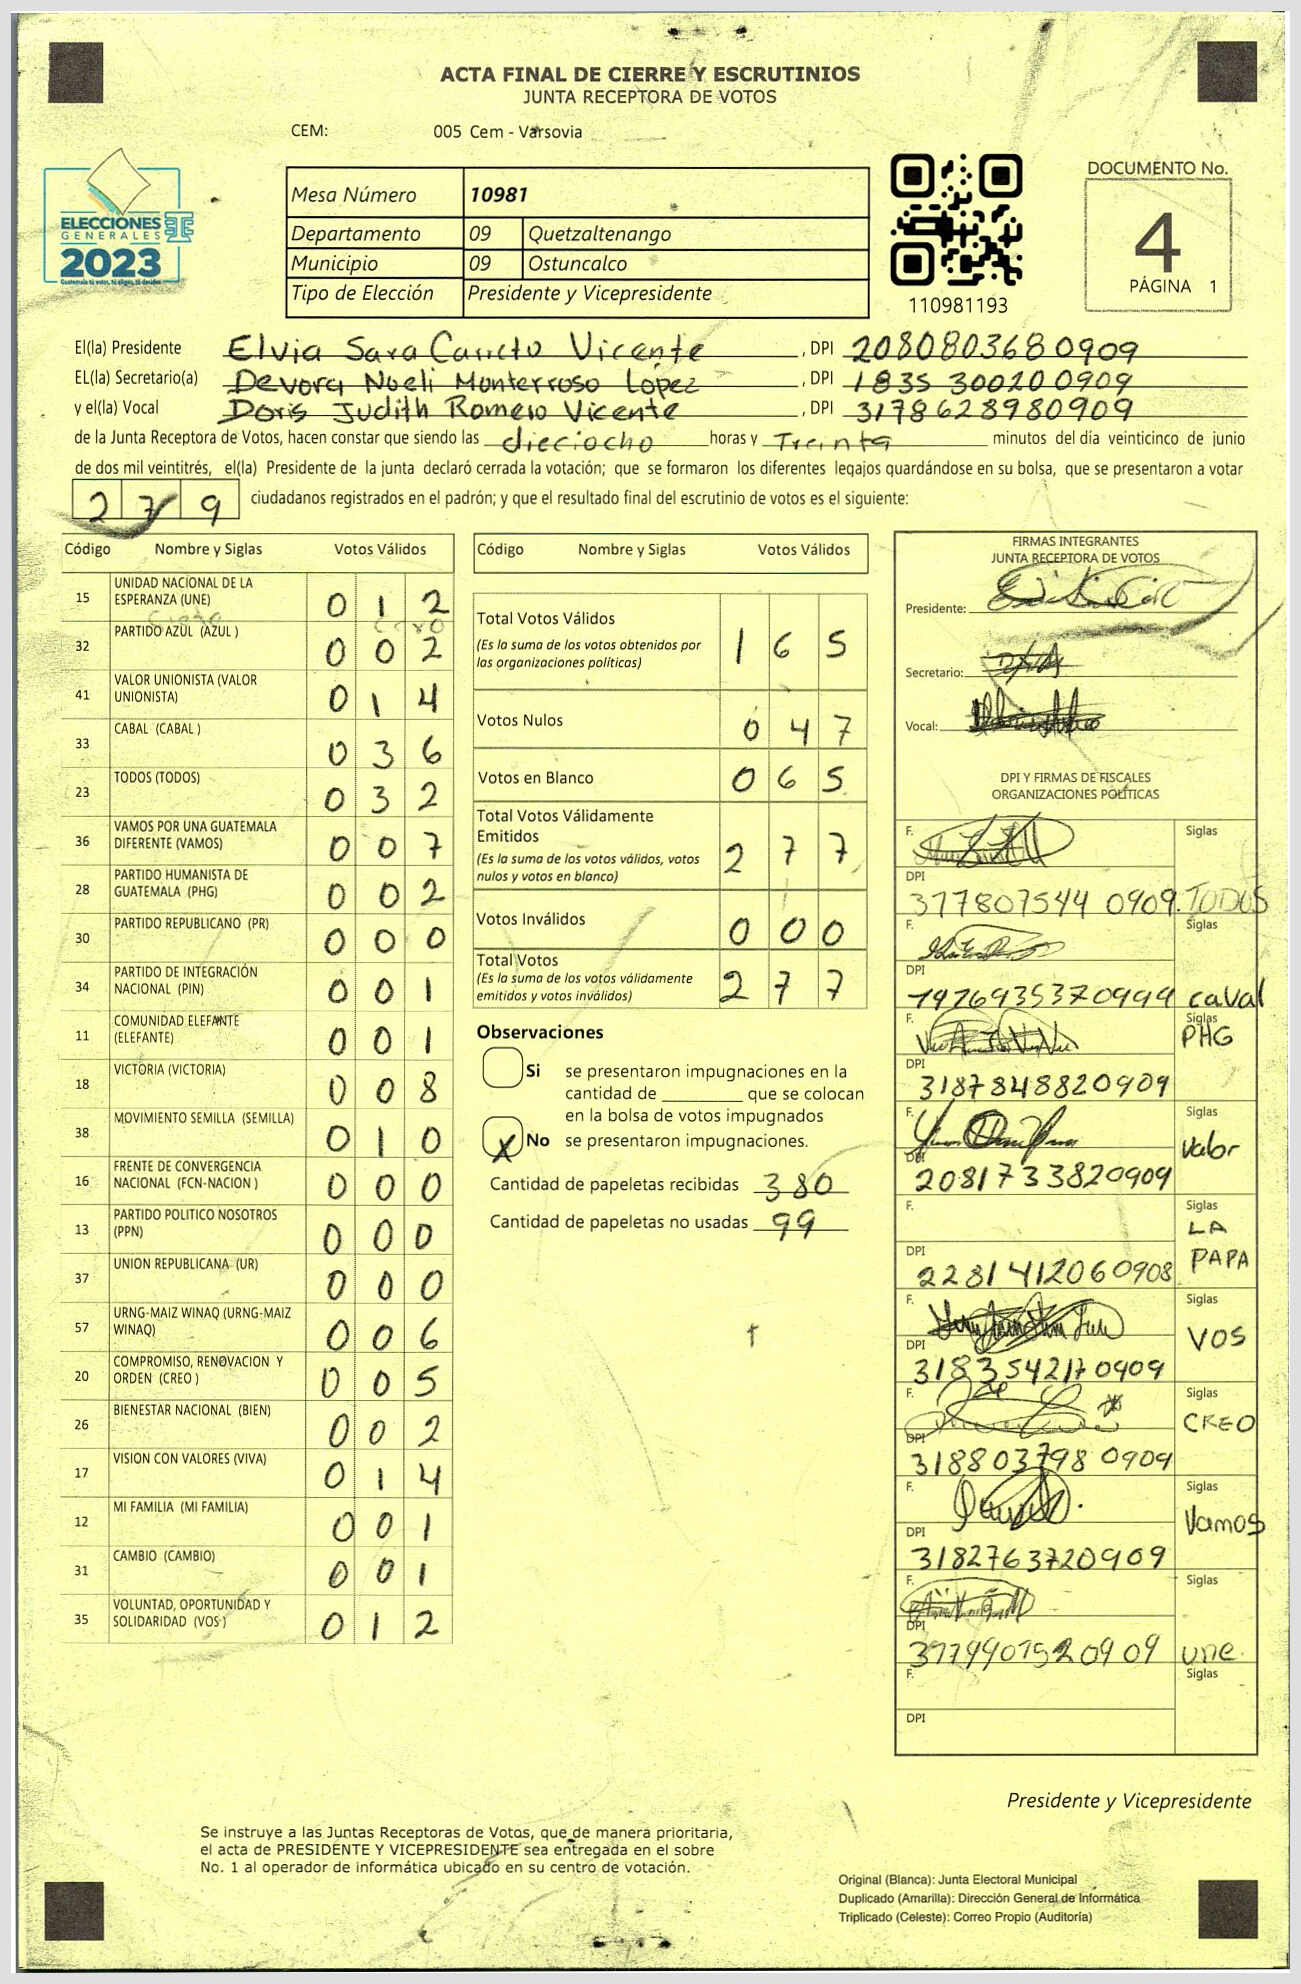 ACTA FINAL DE CIERRE Y ESCRUTINIOS
JUNTA RECEPTORA DE VOTOS
CEM: 005 Cem - Varsovia
ELECCIONES
GENERALES
2023
Guatemala tú votas, tú eliges, tú decides
Mesa Número 10981
Departamento 09 Quetzaltenango
Municipio 09 Ostuncalco
Tipo de Elección Presidente y Vicepresidente
110981193
DOCUMENTO No.
4
PÁGINA 1
El(la) Presidente Elvia Sara Vicente , DPI 2080803680909
EL(la) Secretario(a) Devora Noeli Monterroso López , DPI 1835 300200909
y el(la) Vocal Doris Judith Romero Vicente , DPI 3178628980909
de la Junta Receptora de Votos, hacen constar que siendo las dieciocho horas y Treinta minutos del día veinticinco de junio
de dos mil veintitrés, el(la) Presidente de la junta declaró cerrada la votación; que se formaron los diferentes legajos quardándose en su bolsa, que se presentaron a votar
279 ciudadanos registrados en el padrón; y que el resultado final del escrutinio de votos es el siguiente:
Código Nombre y Siglas Votos Válidos
15 UNIDAD NACIONAL DE LA ESPERANZA (UNE) 012
32 PARTIDO AZUL (AZUL ) 002
41 VALOR UNIONISTA (VALOR UNIONISTA) 014
33 CABAL (CABAL ) 036
23 TODOS (TODOS) 032
36 VAMOS POR UNA GUATEMALA DIFERENTE (VAMOS) 007
28 PARTIDO HUMANISTA DE GUATEMALA (PHG) 002
30 PARTIDO REPUBLICANO (PR) 000
34 PARTIDO DE INTEGRACIÓN NACIONAL (PIN) 001
11 COMUNIDAD ELEFANTE (ELEFANTE) 001
18 VICTORIA (VICTORIA) 008
38 MOVIMIENTO SEMILLA (SEMILLA) 010
16 FRENTE DE CONVERGENCIA NACIONAL (FCN-NACION ) 000
13 PARTIDO POLITICO NOSOTROS (PPN) 000
37 UNION REPUBLICANA (UR) 000
57 URNG-MAIZ WINAQ (URNG-MAIZ WINAQ) 006
20 COMPROMISO, RENOVACION Y ORDEN (CREO ) 005
26 BIENESTAR NACIONAL (BIEN) 002
17 VISION CON VALORES (VIVA) 014
12 MI FAMILIA (MI FAMILIA) 001
31 CAMBIO (CAMBIO) 001
35 VOLUNTAD, OPORTUNIDAD Y SOLIDARIDAD (VOS ) 012
Código Nombre y Siglas Votos Válidos
Total Votos Válidos 165
(Es la suma de los votos obtenidos por
las organizaciones políticas)
Votos Nulos 047
Votos en Blanco 065
Total Votos Válidamente
Emitidos 277
(Es la suma de los votos válidos, votos
nulos y votos en blanco)
Votos Inválidos 000
Total Votos 277
(Es la suma de los votos válidamente
emitidos y votos inválidos)
Observaciones
Si se presentaron impugnaciones en la
cantidad de ________ que se colocan
en la bolsa de votos impugnados
X No se presentaron impugnaciones.
Cantidad de papeletas recibidas 380
Cantidad de papeletas no usadas 99
FIRMAS INTEGRANTES
JUNTA RECEPTORA DE VOTOS
Presidente:
Secretario:
Vocal:
DPI Y FIRMAS DE FISCALES
ORGANIZACIONES POLÍTICAS
F. Siglas
DPI
377807544 0909 TODOS
F. Siglas
DPI
caval
F. Siglas
PHG
DPI
3187848820909
F. Siglas
Valor
DPI
2081733820909
F. Siglas
LA
PAPA
DPI
2281412060908
F. Siglas
VOS
DPI
3183542170909
F. Siglas
CREO
DPI
318803798 0909
F. Siglas
Vamos
DPI
3182763720909
F. Siglas
DPI
une
F. Siglas
DPI
Presidente y Vicepresidente
Se instruye a las Juntas Receptoras de Votos, que de manera prioritaria,
el acta de PRESIDENTE Y VICEPRESIDENTE sea entregada en el sobre
No. 1 al operador de informática ubicado en su centro de votación.
Original (Blanca): Junta Electoral Municipal
Duplicado (Amarilla): Dirección General de Informática
Triplicado (Celeste): Correo Propio (Auditoría)